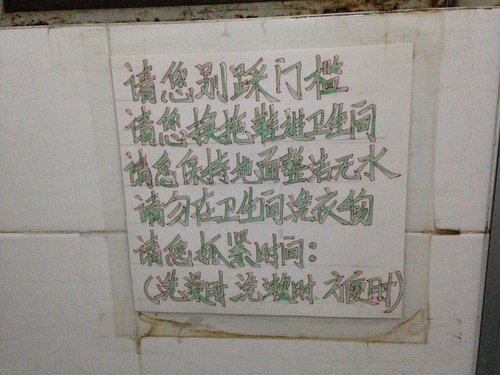 请您别踩门槛
请您换拖鞋进卫生间
请您保持地面整洁无水
请勿在卫生间洗衣物
请您抓紧时间：
（洗澡时 洗漱时 方便时）